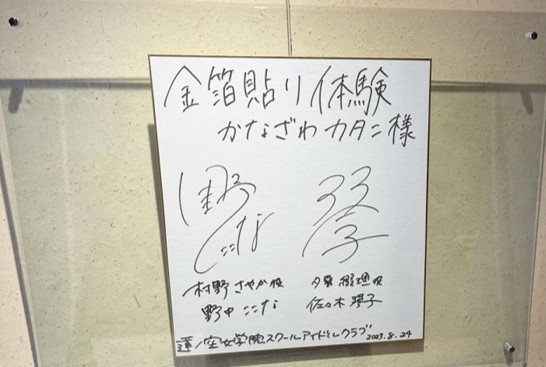 金箔貼り体験
かなざわカタニ様
村野さやか役
野中ここな
夕霧綴理役
佐々木琴子
蓮ノ空女学院スクールアイドルクラブ 2023.8.24